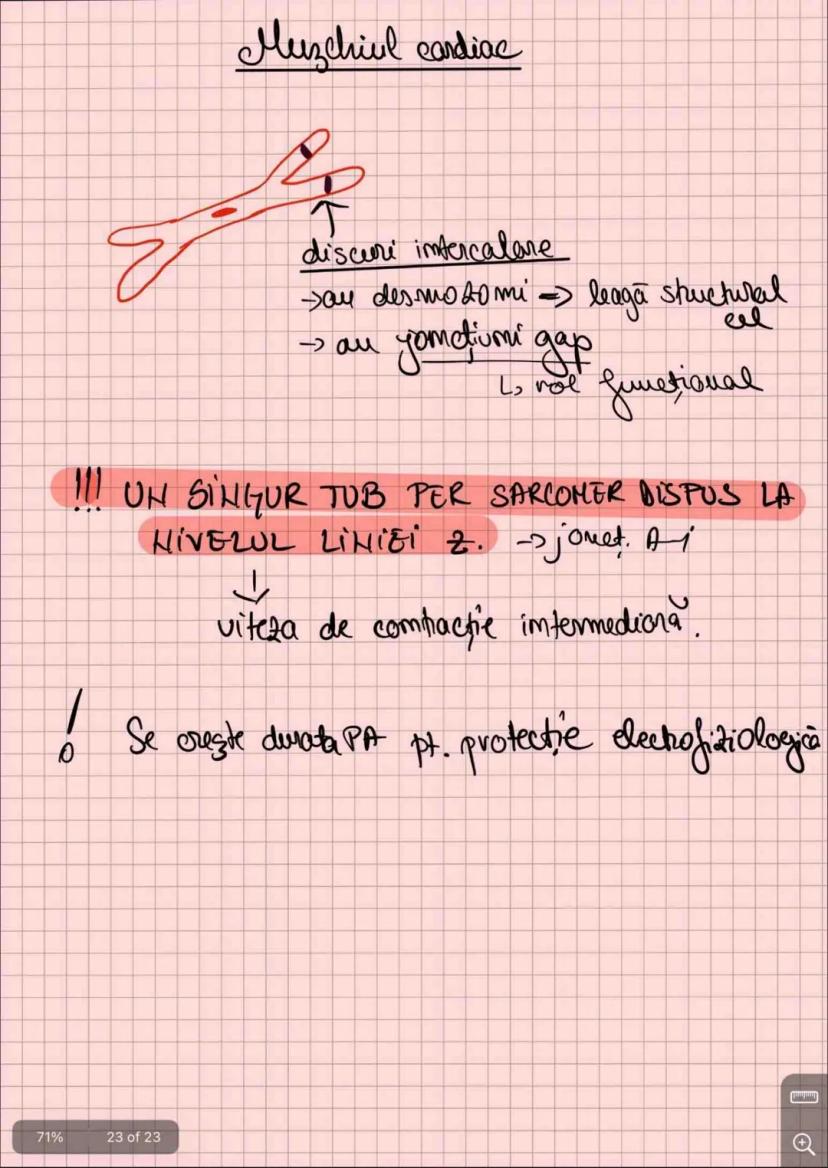 Muzchiul cardiac
discuri intercalare
→ au desmozomi => leagă structural
cel
→ au joncțiuni gap
↳ rol funcțional
!!! UN SINGUR TUB PER SARCOMER DISPUS LA
NIVELUL LINIEI Z. → jonct. A-I
viteza de contracție intermediară.
! Se crește durata PA pt. protecție electrofiziologică
71% 23 of 23